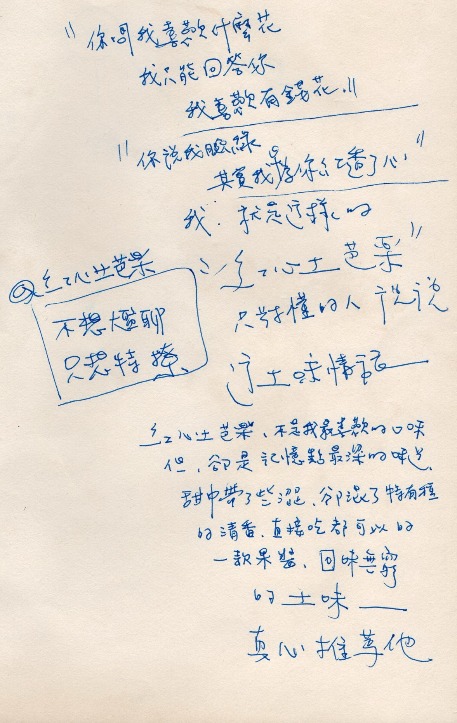 "你問我喜歡什麼花
我只能回答你
我喜歡有錢花."
"你說我臉綠
其實我是為你紅透了心"
我.就是這樣的
"紅心土芭樂"
只對懂的人說說
這土味情話
@紅心土芭樂
不想尬聊
只想特撩
紅心土芭樂.不是我最喜歡的口味
但,卻是記憶點最深的味道
甜中帶了些澀,卻混了特有種
的清香,直接吃都可以的
一款果醬,回味無窮
的土味
真心推荐他